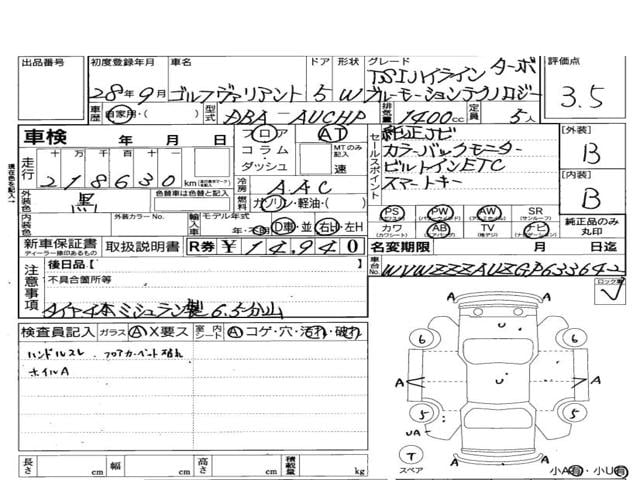 出品番号 初度登録年月 車名 ドア 形状 グレード 評価点
28年9月 ゴルフヴァリアント 5 W TSIハイライン ターボ
ブルーモーションテクノロジー 3.5
車歴 自家用・( ) 型式 DBA-AUCHP 排気量 1400cc 定員 5人
車検 年 月 日 フロア AT
コラム・ダッシュ MTのみ記入 速
走行 十 万 千 百 十 一
218630 km
冷房 AAC
セールスポイント 純正ナビ
カラーバックモニター
ビルトインETC
スマートキー
[外装] B
[内装] B
外装色 黒 色替車は色替と記入 燃料 ガソリン・軽油・( )
内装色 外装カラーNo. 輸入車 モデル年式 年・不明 D車・並 右H・左H
PS PW AW SR (サンルーフ) 純正品のみ丸印
カワ (カワシート) AB (エアバッグ) TV (地デジ) ナビ
新車保証書 取扱説明書 R券 ¥14,940
ディーラー捺印あるもの
名変期限 月 日迄
車台No. WVWZZZAUZGP633642
注意事項 後日品【 】
不具合箇所等
タイヤ4本ミシュラン製 6.5分山
検査員記入 ガラス A X要ス 室内シート A コゲ・穴・汚れ・破れ
ハンドルスレ フロアカーペット
ホイルA
U
6 6
A A U A A
5 5
UA
T スペア A A
小A有・小U有
長さ cm 幅 cm 高さ cm 積載量 kg